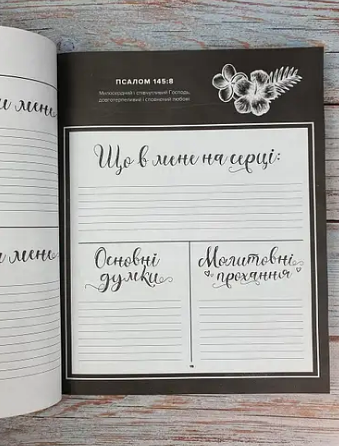 и мене
и мене
ПСАЛОМ 145:8
Милосердний і співчутливий Господь,
довготерпеливий і сповнений любові
Що в мене на серці:
Основні
думки
Молитовні
прохання